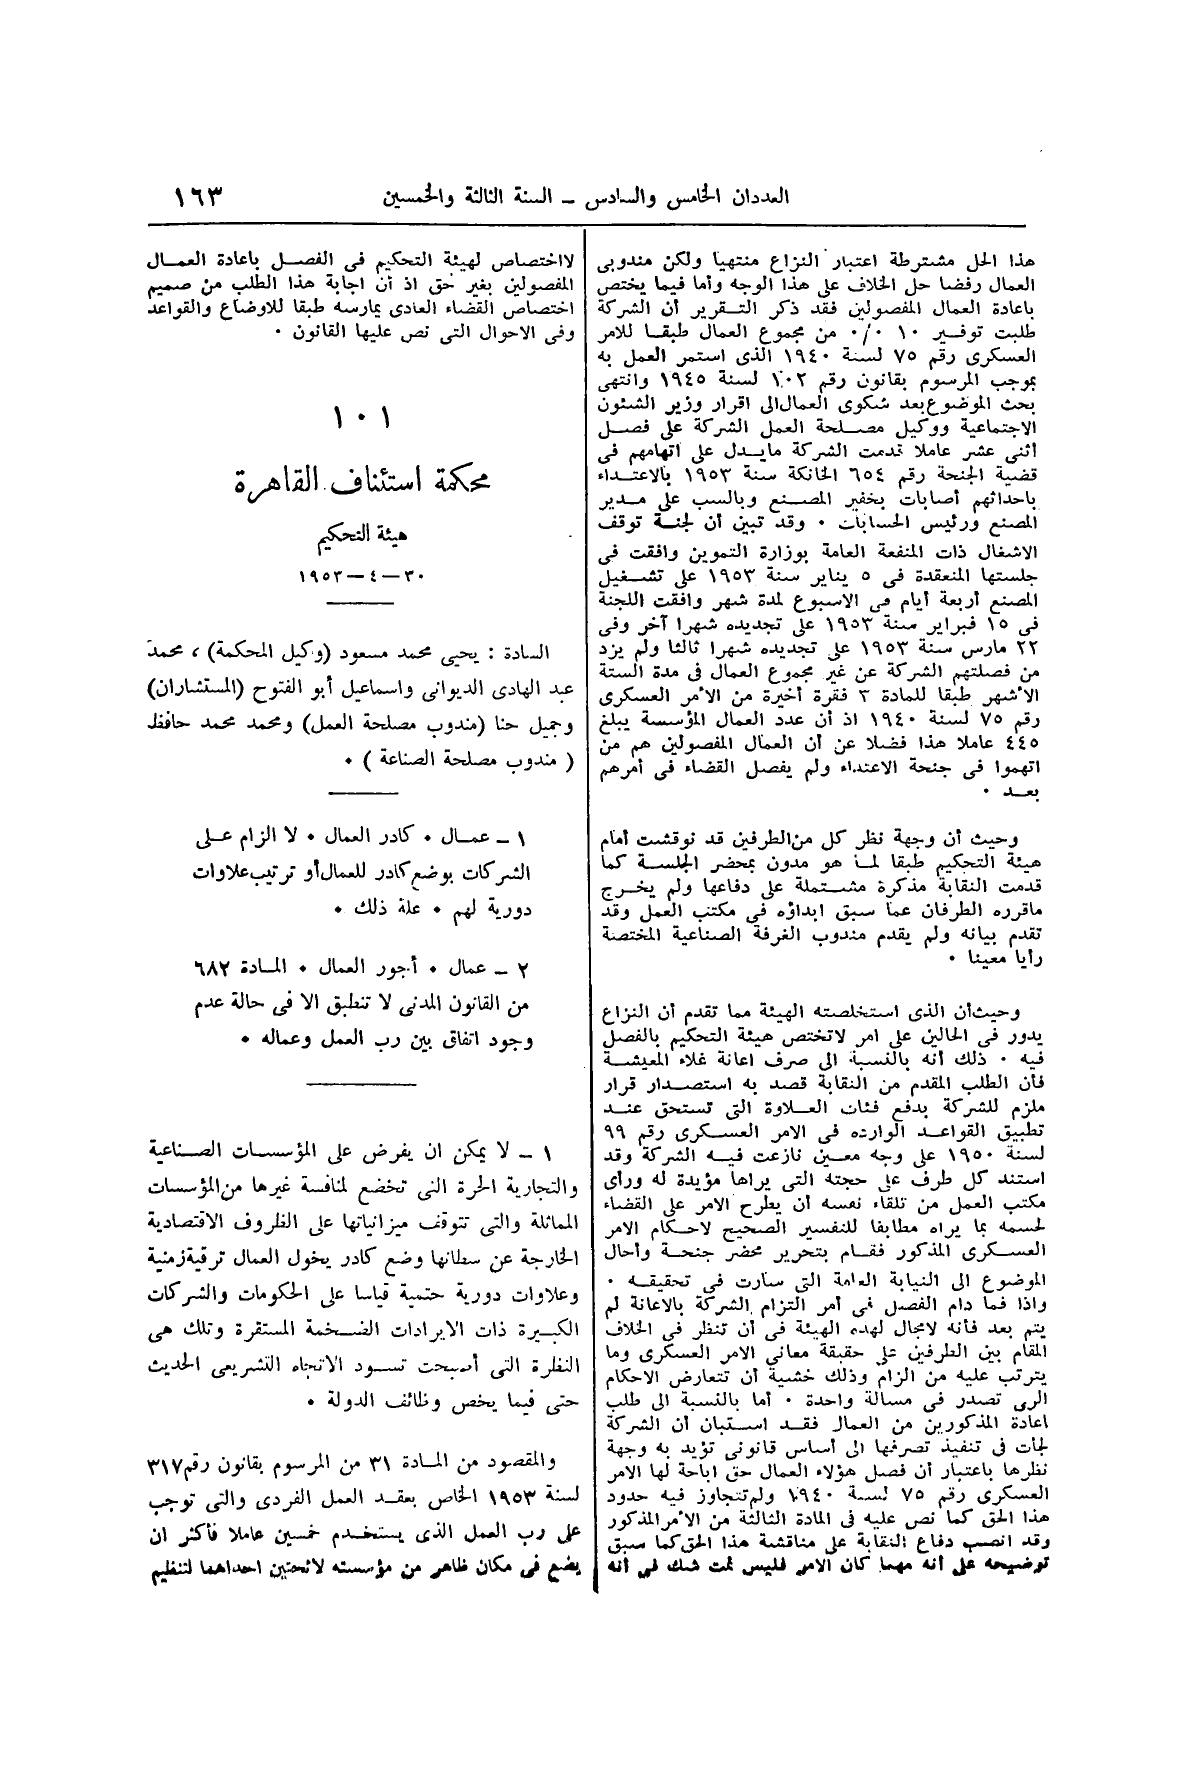 العددان الخامس والسادس – السنة الثالثة والخمسين
١٦٣
هذا الحل مشترطة اعتبار النزاع منتهيا ولكن مندوبى
العمال رفضا حل الخلاف على هذا الوجه وأما فيما يختص
باعادة العمال المفصولين فقد ذكر التقرير أن الشركة
طلبت توفير ١٠ ٠/٠ من مجموع العمال طبقا للامر
العسكرى رقم ٧٥ لسنة ١٩٤٠ الذى استمر العمل به
بموجب المرسوم بقانون رقم ١٠٢ لسنة ١٩٤٥ وانتهى
بحث الموضوع بعد شكوى العمال الى اقرار وزير الشئون
الاجتماعية ووكيل مصلحة العمل الشركة على فصل
أثنى عشر عاملا قدمت الشركة مايدل على اتهامهم فى
قضية الجنحة رقم ٦٥٤ الخانكة سنة ١٩٥٣ بالاعتداء
باحداثهم أصابات بخفير المصنع وبالسب على مدير
المصنع ورئيس الحسابات ٠ وقد تبين أن لجنة توقف
الاشغال ذات المنفعة العامة بوزارة التموين وافقت فى
جلستها المنعقدة فى ٥ يناير سنة ١٩٥٣ على تشغيل
المصنع أربعة أيام فى الاسبوع لمدة شهر وافقت اللجنة
فى ١٥ فبراير سنة ١٩٥٣ على تجديده شهرا آخر وفى
٢٢ مارس سنة ١٩٥٣ على تجديده شهرا ثالثا ولم يزد
من فصلتهم الشركة عن غير مجموع العمال فى مدة الستة
الأشهر طبقا للمادة ٣ فقرة أخيرة من الأمر العسكرى
رقم ٧٥ لسنة ١٩٤٠ اذ أن عدد العمال المؤسسة يبلغ
٤٤٥ عاملا هذا فضلا عن أن العمال المفصولين هم من
اتهموا فى جنحة الاعتداء ولم يفصل القضاء فى أمرهم
بعد ٠
وحيث أن وجهة نظر كل من الطرفين قد نوقشت أمام
هيئة التحكيم طبقا لما هو مدون بمحضر الجلسة كما
قدمت النقابة مذكرة مشتملة على دفاعها ولم يخرج
ماقرره الطرفان عما سبق ابداؤه فى مكتب العمل وقد
تقدم بيانه ولم يقدم مندوب الغرفة الصناعية المختصة
رأيا معينا ٠
وحيث أن الذى استخلصته الهيئة مما تقدم أن النزاع
يدور فى الحالين على امر لاتختص هيئة التحكيم بالفصل
فيه ٠ ذلك أنه بالنسبة الى صرف اعانة غلاء المعيشة
فأن الطلب المقدم من النقابة قصد به استصدار قرار
ملزم للشركة بدفع فئات العلاوة التى تستحق عند
تطبيق القواعد الوارده فى الامر العسكرى رقم ٩٩
لسنة ١٩٥٠ على وجه معين نازعت فيه الشركة وقد
استند كل طرف على حجته التى يراها مؤيدة له ورأى
مكتب العمل من تلقاء نفسه أن يطرح الامر على القضاء
لحسمه بما يراه مطابقا للنفسير الصحيح لاحكام الامر
العسكرى المذكور فقام بتحرير محضر جنحة وأحال
الموضوع الى النيابة العامة التى سارت فى تحقيقه ٠
واذا فما دام الفصل فى أمر التزام الشركة بالاعانة لم
يتم بعد فأنه لامجال لهذه الهيئة فى أن تنظر فى الخلاف
المقام بين الطرفين على حقيقة معانى الامر العسكرى وما
يترتب عليه من الزام وذلك خشية أن تتعارض الاحكام
الى تصدر فى مسالة واحدة ٠ أما بالنسبة الى طلب
اعادة المذكورين من العمال فقد استبان أن الشركة
لجات فى تنفيذ تصرفها الى أساس قانونى تؤيد به وجهة
نظرها باعتبار أن فصل هؤلاء العمال حق اباحة لها الامر
العسكرى رقم ٧٥ لسنة ١٩٤٠ ولم تتجاوز فيه حدود
هذا الحق كما نص عليه فى المادة الثالثة من الأمر المذكور
وقد انصب دفاع النقابة على مناقشة هذا الحق كما سبق
توضيحه على أنه مهما كان الامر فليس ثمت شك فى أنه
لااختصاص لهيئة التحكيم فى الفصل باعادة العمال
المفصولين بغير حق اذ أن اجابة هذا الطلب من صميم
اختصاص القضاء العادى يمارسه طبقا للاوضاع والقواعد
وفى الاحوال التى نص عليها القانون ٠
١٠١
محكمة استئناف القاهرة
هيئة التحكيم
٣٠–٤–١٩٥٣
السادة : يحيى محمد مسعود (وكيل المحكمة) ، محمد
عبد الهادى الديوانى واسماعيل أبو الفتوح (المستشاران)
وجميل حنا (مندوب مصلحة العمل) ومحمد محمد حافظ
( مندوب مصلحة الصناعة ) ٠
١ – عمال ٠ كادر العمال ٠ لا الزام على
الشركات بوضع كادر للعمال أو ترتيب علاوات
دورية لهم ٠ علة ذلك ٠
٢ – عمال ٠ أجور العمال ٠ المادة ٦٨٢
من القانون المدنى لا تنطبق الا فى حالة عدم
وجود اتفاق بين رب العمل وعماله ٠
١ – لا يمكن ان يفرض على المؤسسات الصناعية
والتجارية الحرة التى تخضع لمنافسة غيرها من المؤسسات
المماثلة والتى تتوقف ميزانياتها على الظروف الاقتصادية
الخارجة عن سطانها وضع كادر يخول العمال ترقية زمنية
وعلاوات دورية حتمية قياسا على الحكومات والشركات
الكبيرة ذات الايرادات الضخمة المستقرة وتلك هى
النظرة التى أصبحت تسود الاتجاه التشريعى الحديث
حتى فيما يخص وظائف الدولة ٠
والمقصود من المادة ٣١ من المرسوم بقانون رقم ٣١٧
لسنة ١٩٥٣ الخاص بعقد العمل الفردى والتى توجب
على رب العمل الذى يستخدم خمسين عاملا فأكثر ان
يضع فى مكان ظاهر من مؤسسته لائحتين احداهما لتنظيم